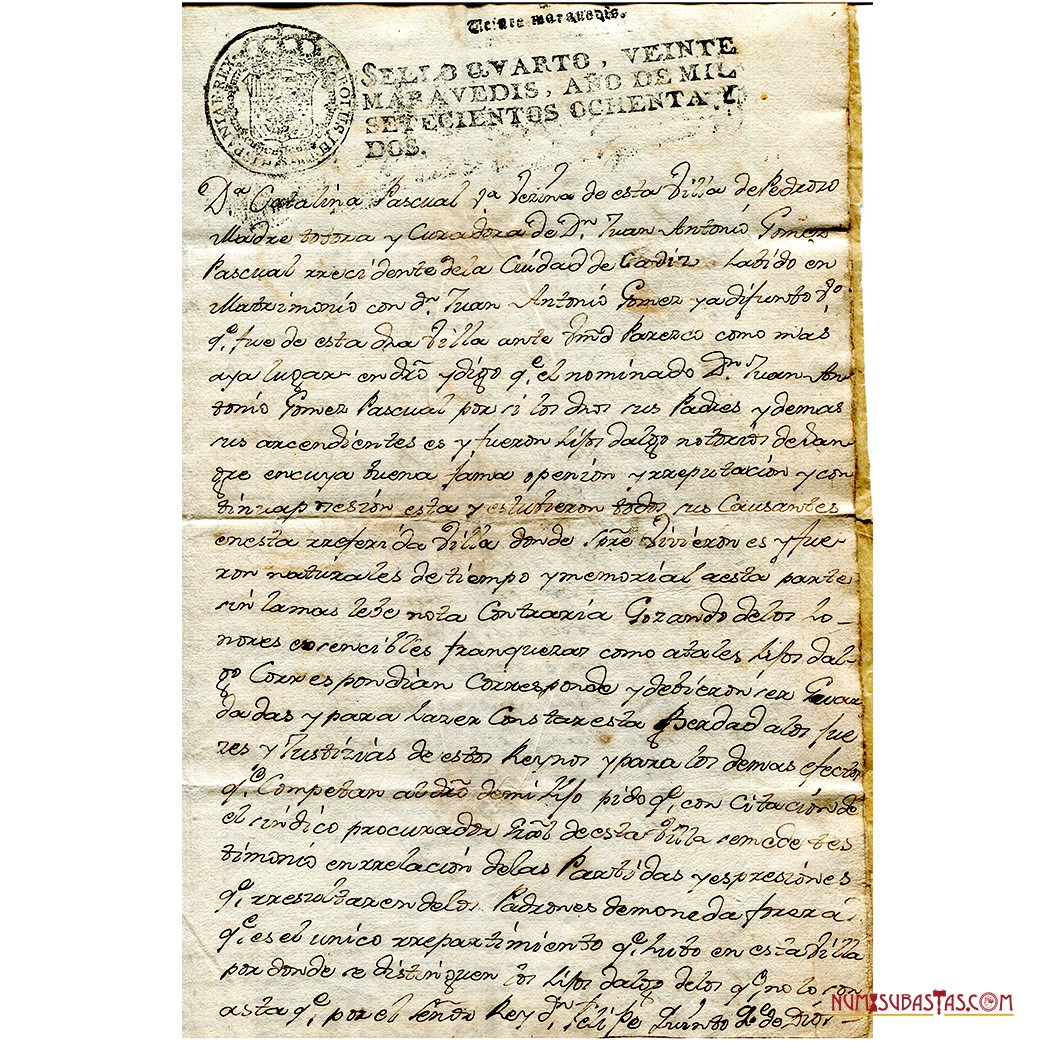 Veinte maravedis.
SELLO QVARTO, VEINTE
MARAVEDIS, AÑO DE MIL
SETECIENTOS OCHENTA Y
DOS.
HISPANIAR. REX CAROLUS III
Dª Catalina Pascual Va vezina de esta Villa de Pedroso
Madre totora y Curadora de Dn Juan Antonio Gomez
Pascual rrecidente de la Ciudad de Cadiz habido en
Matrimonio con dn Juan Antonio Gomez ya difunto Vº
qe fue de esta dha Villa ante Vmd Paresco como mas
aya lugar en dro y digo qe el nominado Dn Juan An-
tonio Gomez Pascual por si los dhos sus Padres y demas
sus ascendientes es y fueron hijos dalgo notorios de san-
gre en cuya buena fama openion y rreputacion y con
tinua posesion esta y estubieron todos sus Causantes
en esta rreferida Villa donde spre vivieron es y fue-
ron naturales de tiempo ymemorial a esta parte
sin la mas lebe nota Contraria Gozando de los ho-
nores esenciones franquezas como a tales hijos dal-
go Correspondian Corresponde y debieron ser Guar
dadas y para hazer Constar esta Berdad a los jue
zes y Justizias de estos Reynos y para los demas efectos
qe Competan al dro de mi hijo pido qe con Citacion de
el sindico procurador Gral de esta Villa se me de tes
timonio en rrelacion de las Partidas y espresiones
qe rresultaren de los Padrones de moneda forera
qe es el unico rrepartimiento qe hubo en esta Villa
por donde se distinguen los hijos dalgo de los qe no lo son
asta qe por el señor Rey dn Felipe Quinto qe de Dios
NUMISUBASTAS.COM